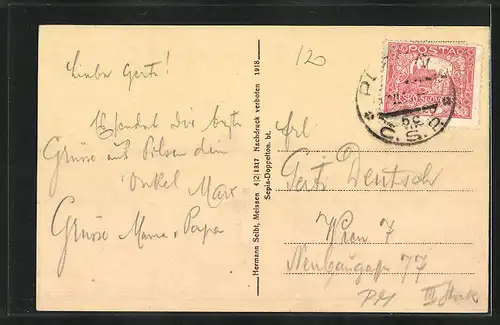 Liebe Gerti!
sendet die beste
Grüsse aus Pilsen dein
Onkel Max
Grüsse Mama + Papa
Hermann Seibt, Meissen 4|2|1317 Nachdruck verboten 1918.
Sepia-Doppelton. bt.
120
POSTA
Č.S.P.
Frl.
Gerti Deutsch
Wien 7
Neubaugasse 77
III Stock